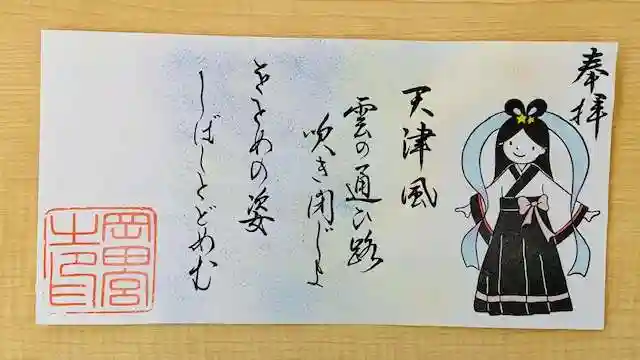 奉拝
天津風
雲の通ひ路
吹き閉じよ
をとめの姿
しばしとどめむ
岡田宮